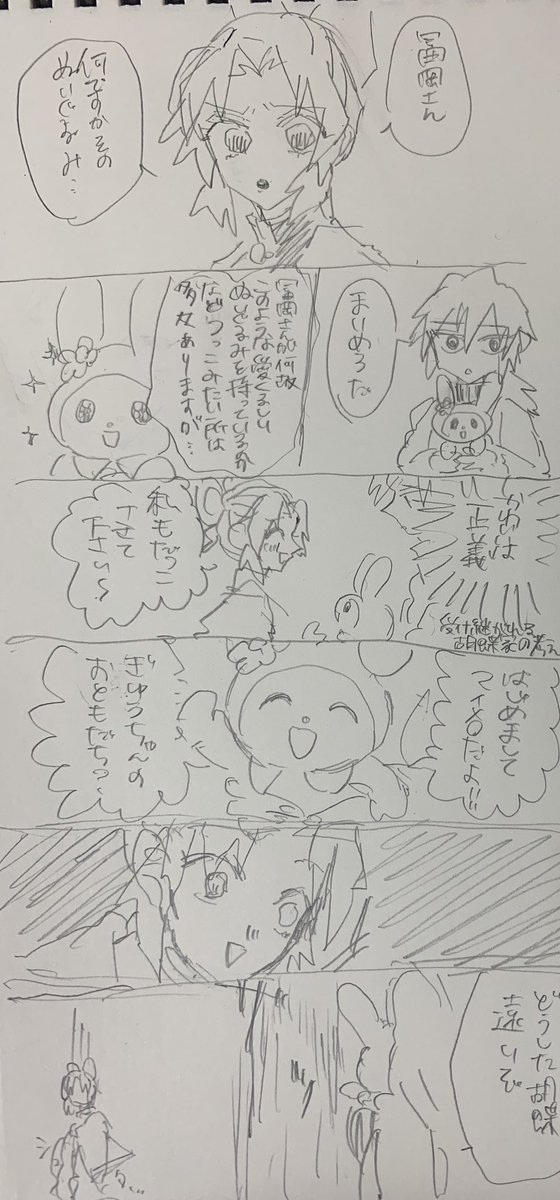 冨岡さん
何ですかその
ぬいぐるみ…
まいめろだ
冨岡さんが何故
このような愛くるしい
ぬいぐるみを持っているのか
などつっこみたい所は
多々ありますが…
かわいいは
正義
受け継がれる
胡蝶家の考え
私もだっこ
させて
下さい〜
はじめまして
マイメロだよ!!
ぎゆうちゃんの
おともだちっ
どうした胡蝶
遠いぞ